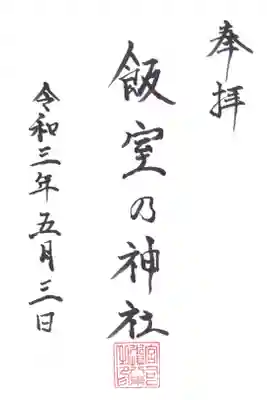 奉拝
飯室乃神社
令和三年五月三日